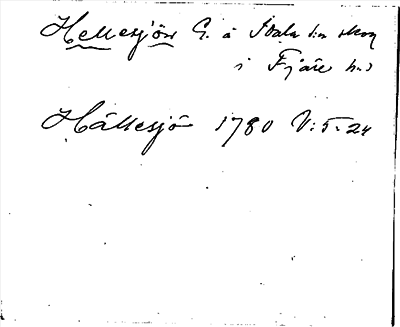 Hellesjön G. å Idala s:n skog
i Fjäre h:d
Hällesjö 1780 V:5:24